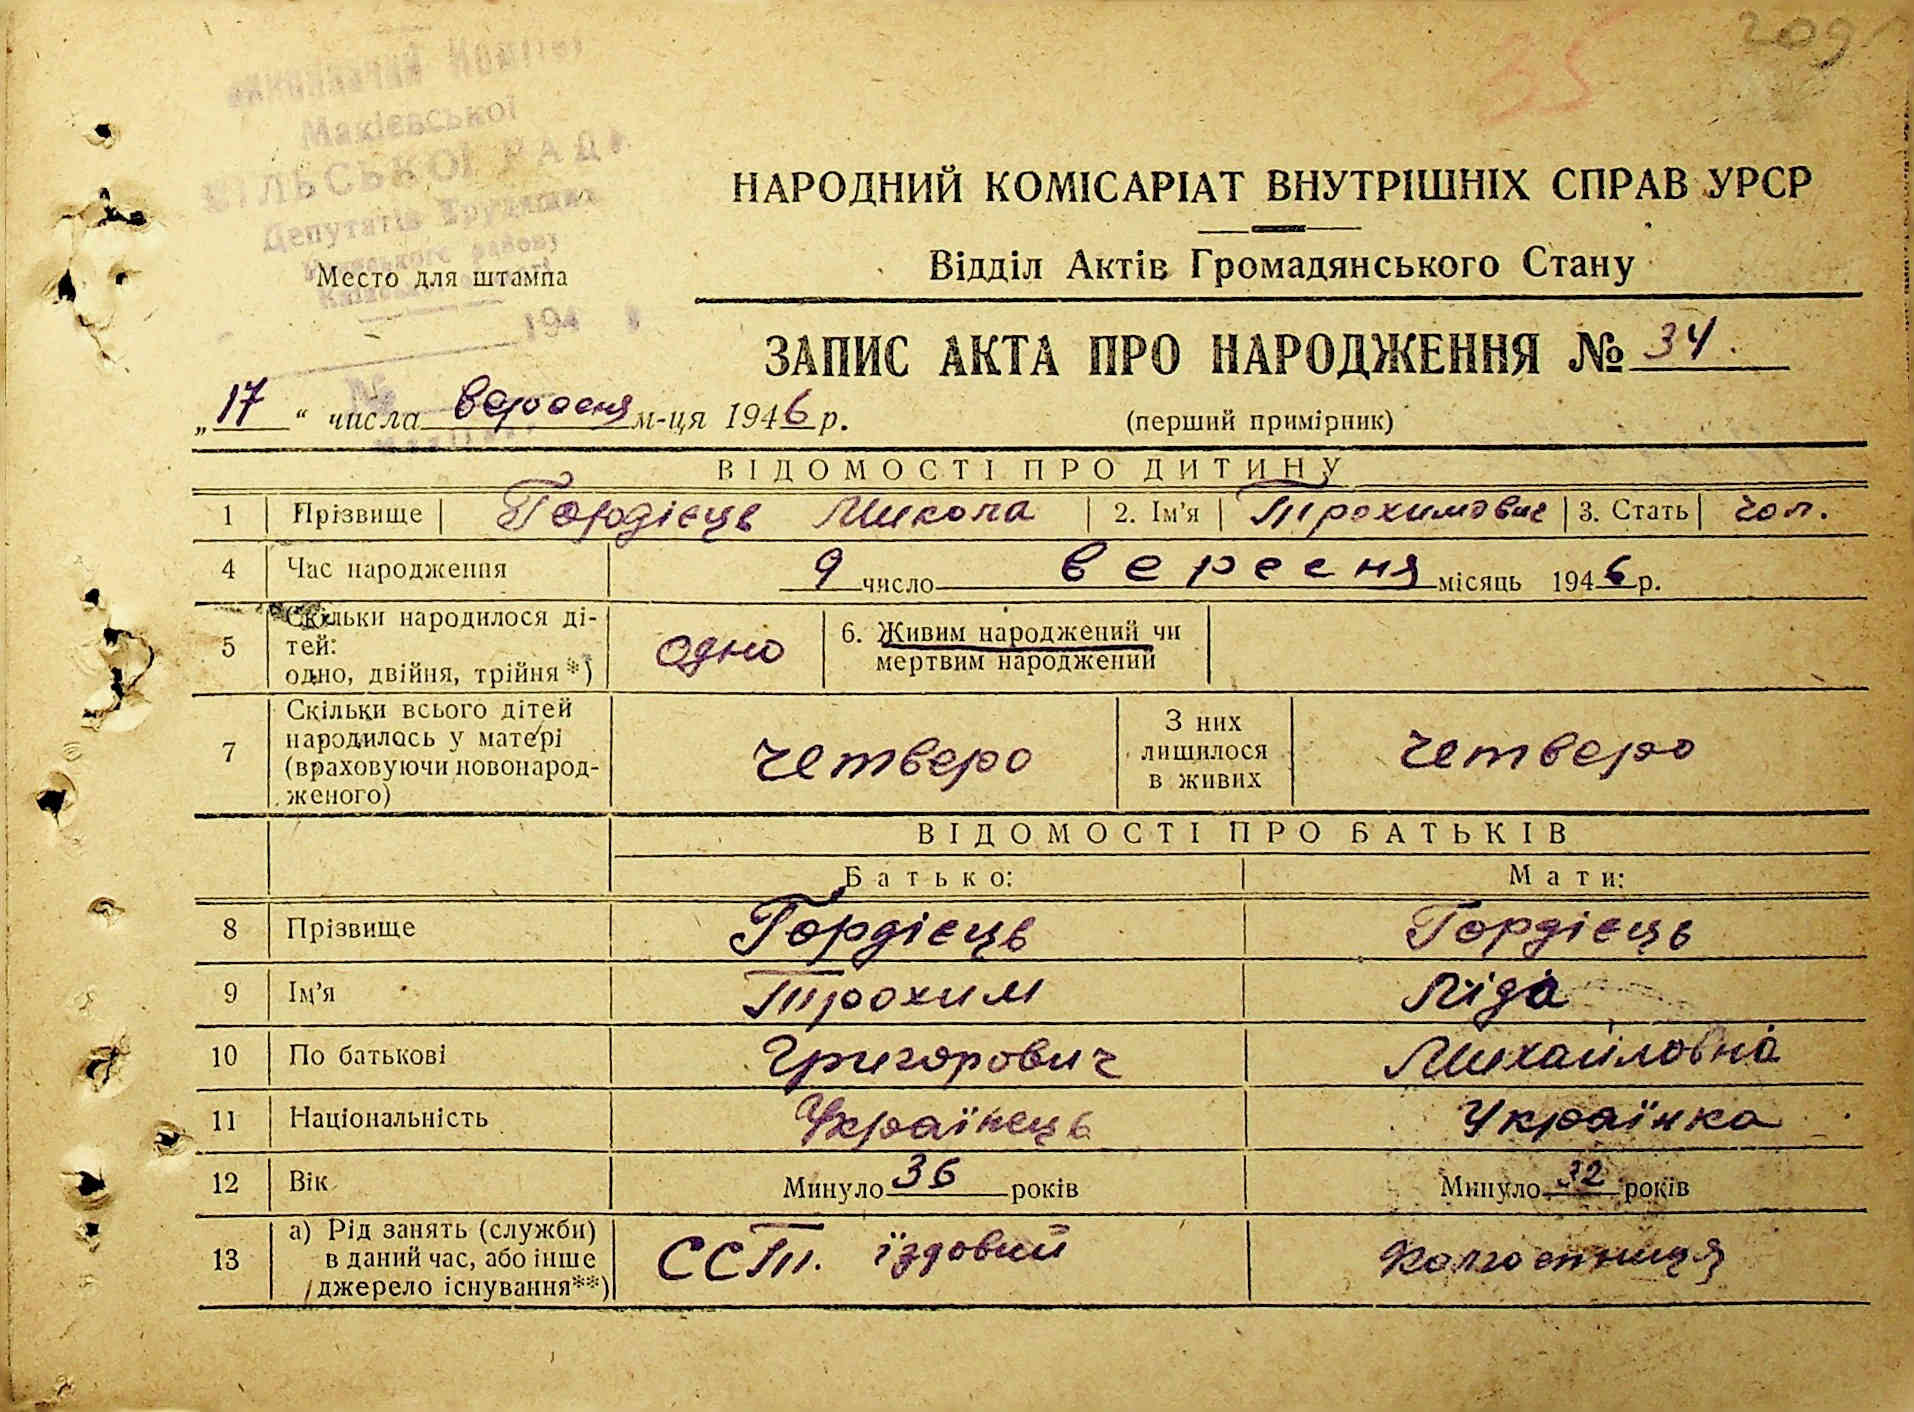 35
209
Виконавчий Комітет
Макієвської
СІЛЬСЬКОЇ РАДИ
Депутатів Трудящих
району
194
№
НАРОДНИЙ КОМІСАРІАТ ВНУТРІШНІХ СПРАВ УРСР
Відділ Актів Громадянського Стану
Место для штампа
ЗАПИС АКТА ПРО НАРОДЖЕННЯ № 34.
(перший примірник)
„17“ числа вересня м-ця 1946 р.
ВІДОМОСТІ ПРО ДИТИНУ
1 Прізвище Гордієць Микола 2. Ім'я Трохимович 3. Стать чол.
4 Час народження 9 число вересня місяць 1946 р.
5 Скільки народилося ді-
тей:
одно, двійня, трійня *) одно 6. Живим народжений чи
мертвим народжений
7 Скільки всього дітей
народилось у матері
(враховуючи новонарод-
женого) четверо З них
лишилося
в живих четверо
ВІДОМОСТІ ПРО БАТЬКІВ
Батько: Мати:
8 Прізвище Гордієць Гордієць
9 Ім'я Трохим Ліда
10 По батькові Григорович Михайловна
11 Національність Українець Українка
12 Вік Минуло 36 років Минуло 32 років
13 а) Рід занять (служби)
в даний час, або інше
джерело існування**) ССТ. їздовий Колгоспниця